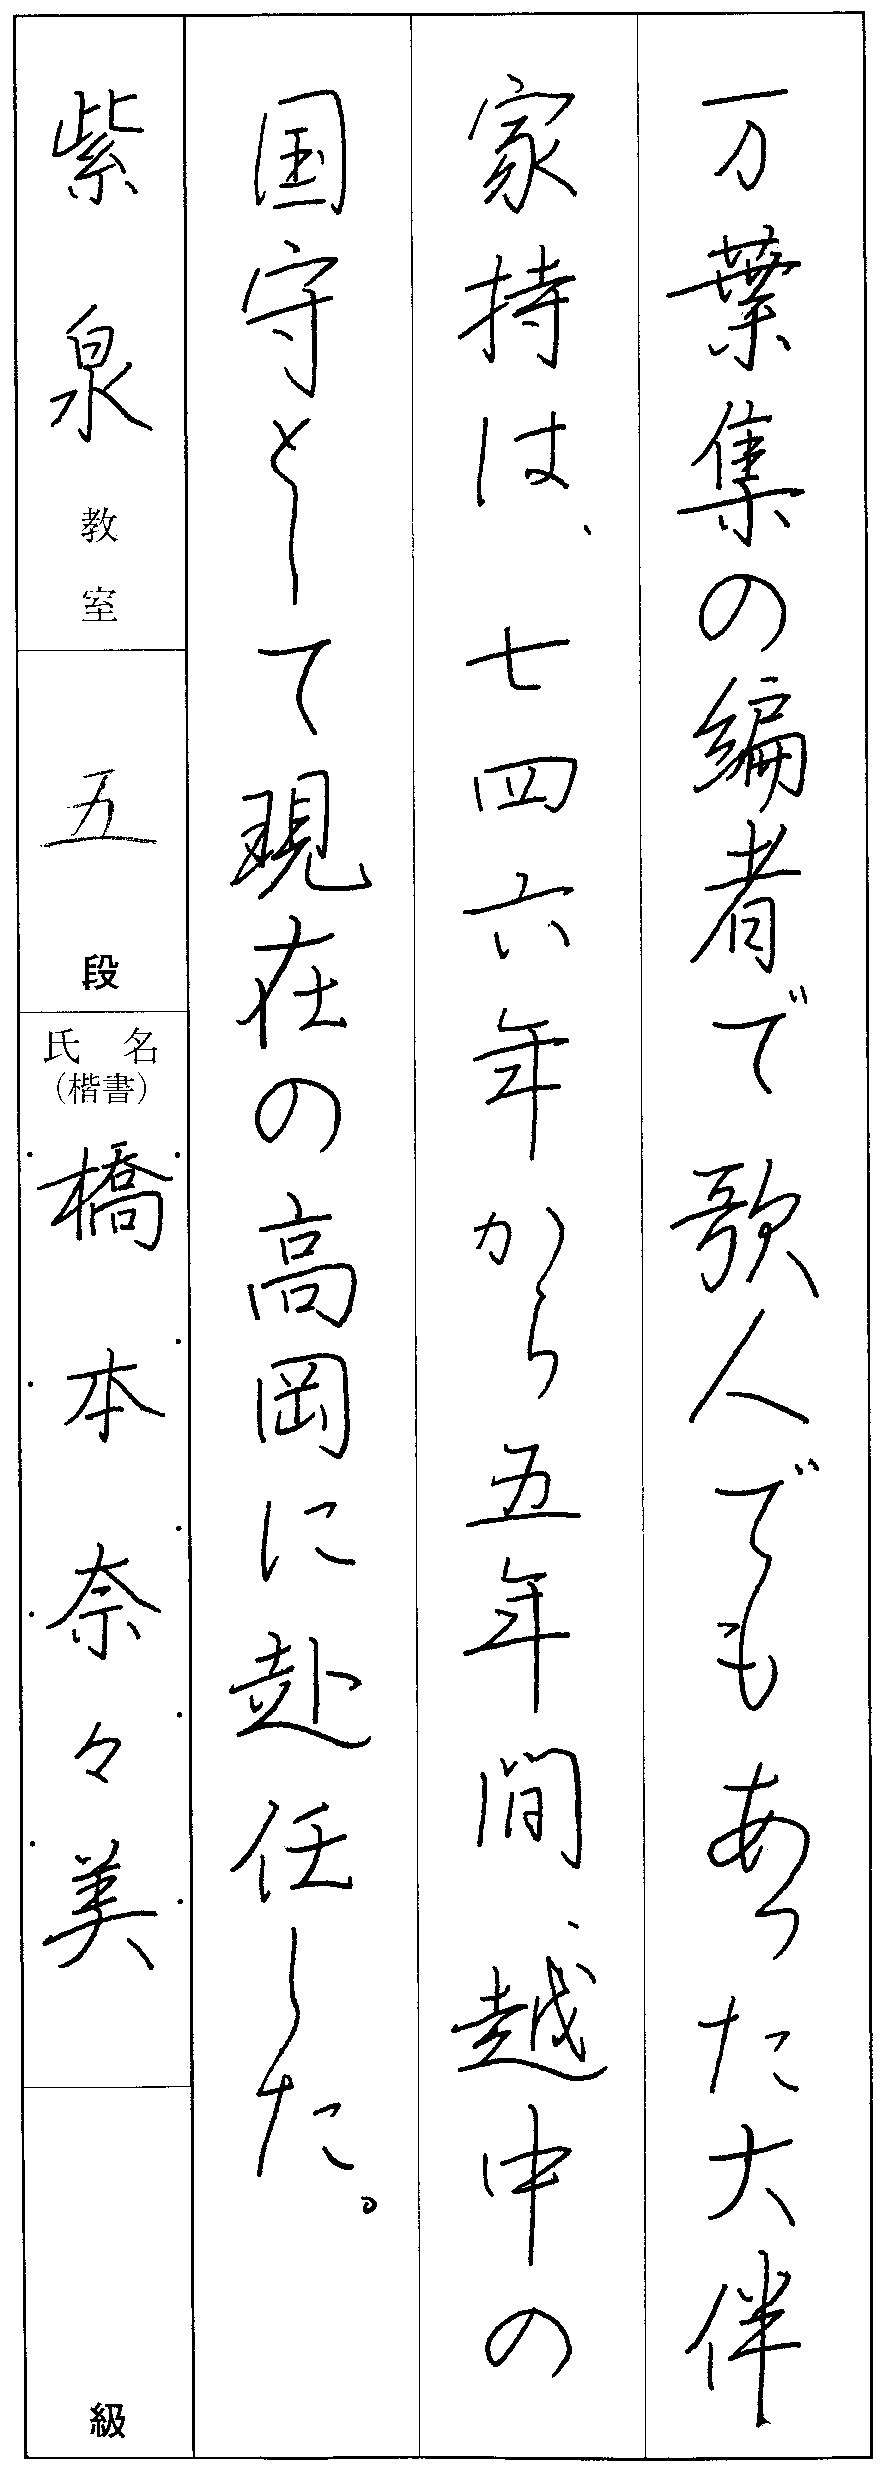 万葉集の編者で歌人でもあった大伴
家持は、七四六年から五年間、越中の
国守として現在の高岡に赴任した。
紫泉教室
五段
氏名
(楷書)
橋本奈々美
級